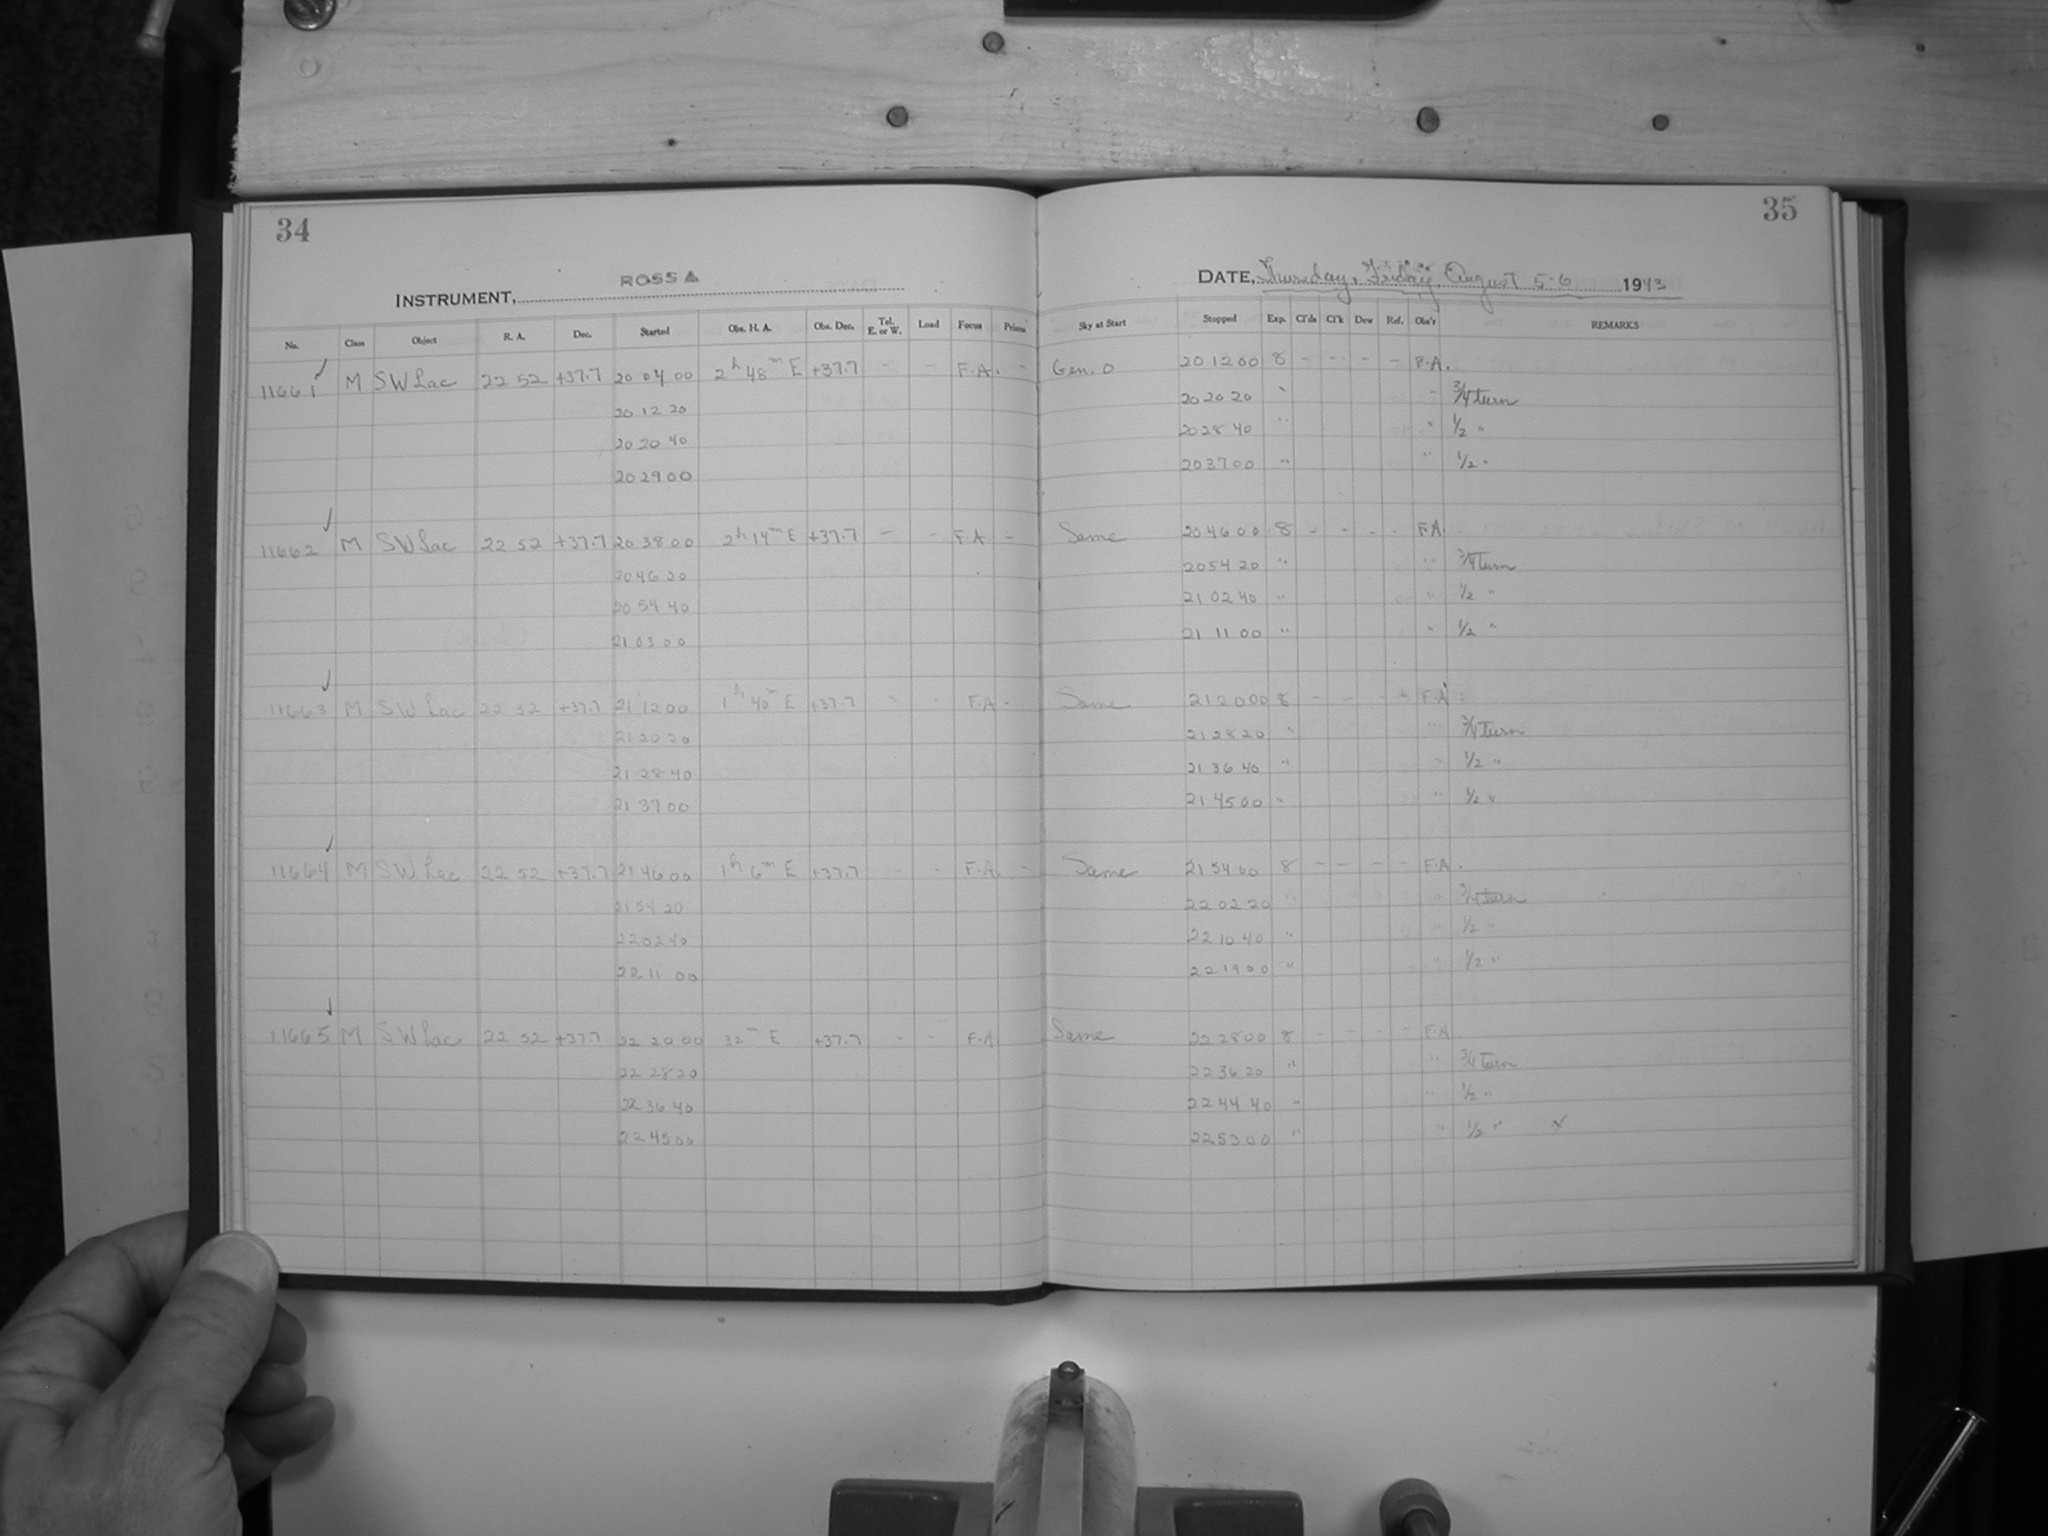 34
INSTRUMENT, ROSS A
No. Class Object R. A. Dec. Started Obs. H. A. Obs. Dec. Tel. E. or W. Load Focus Prisms
11661 M SW Lac 22 52 +37.7 20 04 00 2h 48m E +37.7 - - F.A. -
20 12 20
20 20 40
20 29 00
11662 M SW Lac 22 52 +37.7 20 38 00 2h 14m E +37.7 - - F.A. -
20 46 20
20 54 40
21 03 00
11663 M SW Lac 22 52 +37.7 21 12 00 1h 40m E +37.7 - - F.A. -
21 20 20
21 28 40
21 37 00
11664 M SW Lac 22 52 +37.7 21 46 00 1h 6m E +37.7 - - F.A. -
21 54 20
22 02 40
22 11 00
11665 M SW Lac 22 52 +37.7 22 20 00 32m E +37.7 - - F.A.
22 28 20
22 36 40
22 45 00
35
DATE, Thursday, Friday, August 5-6 1943
Sky at Start Stopped Exp. Cl'ds Cl'k Dew Ref. Obs'r REMARKS
Gen. O 20 12 00 8 - - - - F.A.
20 20 20 " " 3/4 turn
20 28 40 " " 1/2 "
20 37 00 " " 1/2 "
Same 20 46 00 8 - - - - F.A.
20 54 20 " " 3/4 turn
21 02 40 " " 1/2 "
21 11 00 " " 1/2 "
Same 21 20 00 8 - - - - F.A.
21 28 20 " " 3/4 turn
21 36 40 " " 1/2 "
21 45 00 " " 1/2 "
Same 21 54 00 8 - - - - F.A.
22 02 20 " " 3/4 turn
22 10 40 " " 1/2 "
22 19 00 " " 1/2 "
Same 22 28 00 8 - - - - F.A.
22 36 20 " " 3/4 turn
22 44 40 " " 1/2 "
22 53 00 " " 1/2 " x